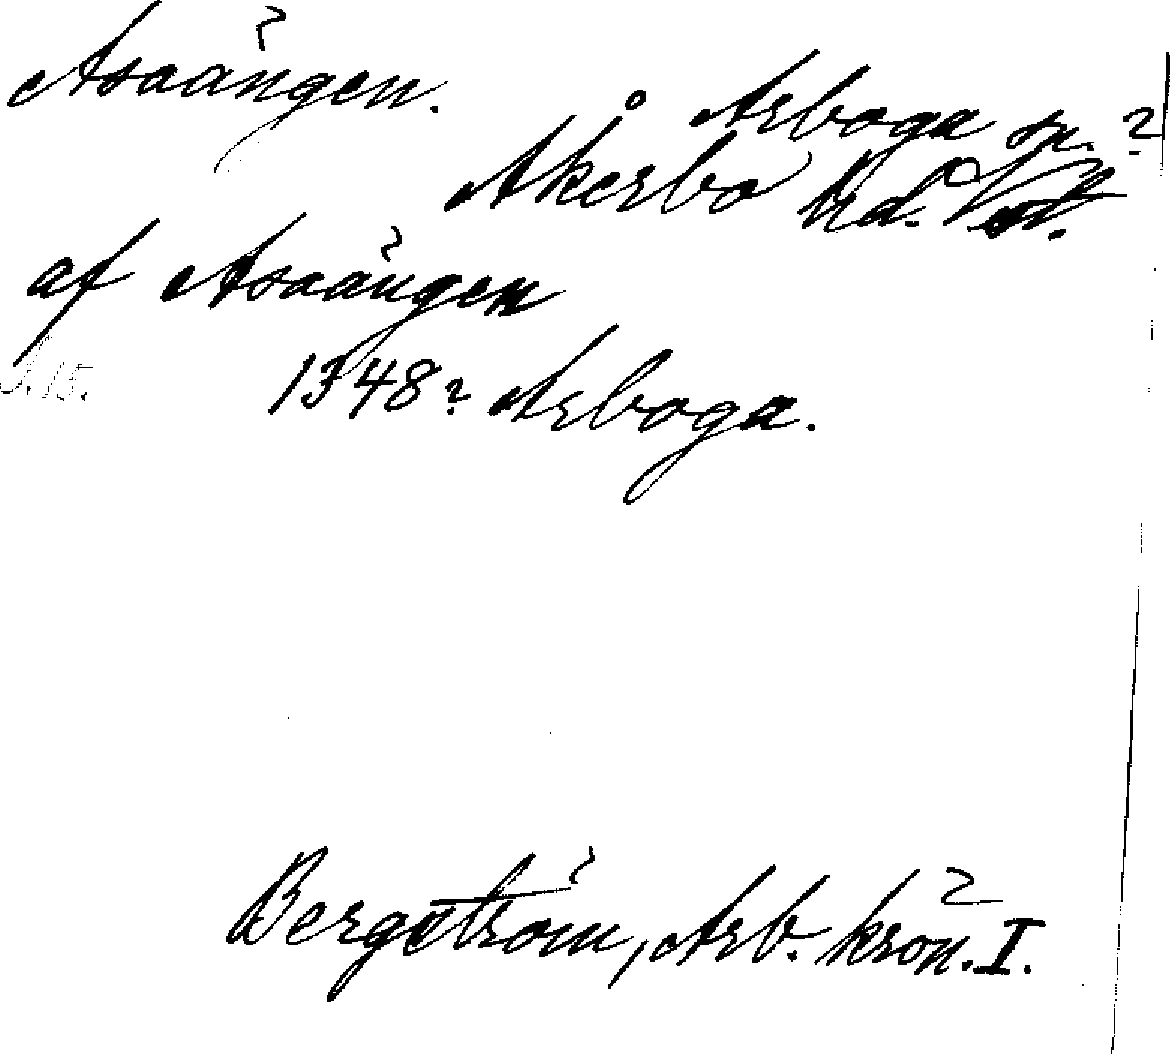 Asaängen.
Arboga sn. ?
Åkerbo hd. Vstm.
af Asaängen
S. 15.
1348? Arboga.
Bergström, Arb. krön. I.